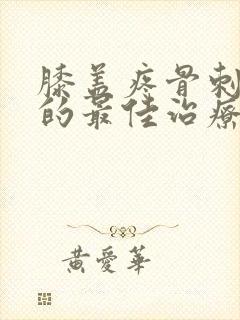 膝盖疼骨刺
的最佳治療
黄愛華